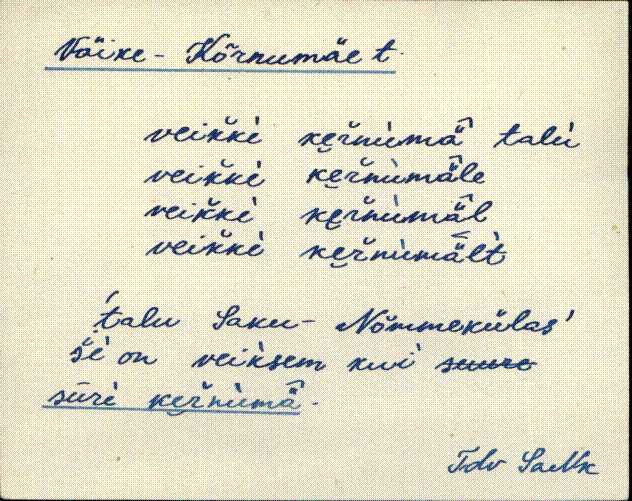 Väike-Kõrnumäe t.
veikkè kẹrnùmä̂ talù
veikkè kẹrnùmä̂le
veikkè kẹrnùmä̂l
veikkè kẹrnùmä̂lt
'talu Saku-Nõmmekülas'
šè on veiksem kui suure
sūrè kẹrnùmä̂.